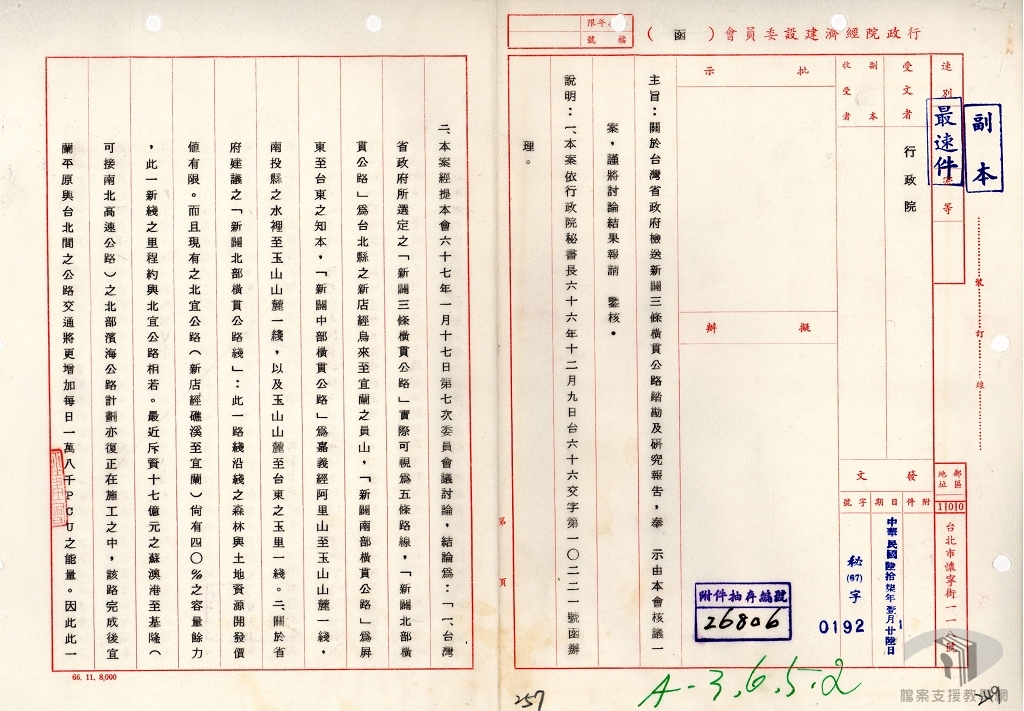 行政院經濟建設委員會（函）
限年存保
號檔
速別
最速件
密等
副本
受文者
行政院
副本收受者
批示
擬辦
發文
附件
日期
字號
中華民國陸拾柒年壹月廿陸日
秘(67)字
0192
郵區
地址
100
台北市懷寧街一一八號
裝訂線
附件抽存編號
26806
主旨：關於台灣省政府檢送新闢三條橫貫公路踏勘及研究報告，奉　示由本會核議一
案，謹將討論結果報請　鑒核。
說明：一、本案依行政院秘書長六十六年十二月九日台六十六交字第一〇二二一號函辦
理。
第頁
二、本案經提本會六十七年一月十七日第七次委員會議討論，結論為：「一、台灣
省政府所選定之「新闢三條橫貫公路」實際可視為五條路線，「新闢北部橫
貫公路」為台北縣之新店經烏來至宜蘭之員山，「新闢南部橫貫公路」為屏
東至台東之知本，「新闢中部橫貫公路」為嘉義經阿里山至玉山山麓一綫，
南投縣之水裡至玉山山麓一綫，以及玉山山麓至台東之玉里一綫。二、關於省
府建議之「新闢北部橫貫公路綫」：此一路綫沿綫之森林與土地資源開發價
值有限。而且現有之北宜公路（新店經礁溪至宜蘭）尙有四〇％之容量餘力
，此一新綫之里程約與北宜公路相若。最近斥資十七億元之蘇澳港至基隆（
可接南北高速公路）之北部濱海公路計劃亦復正在施工之中，該路完成後宜
蘭平原與台北間之公路交通將更增加每日一萬八千PCU之能量。因此此一
66. 11. 8,000
257
A-3.6.5.2
249
檔案支援教學網